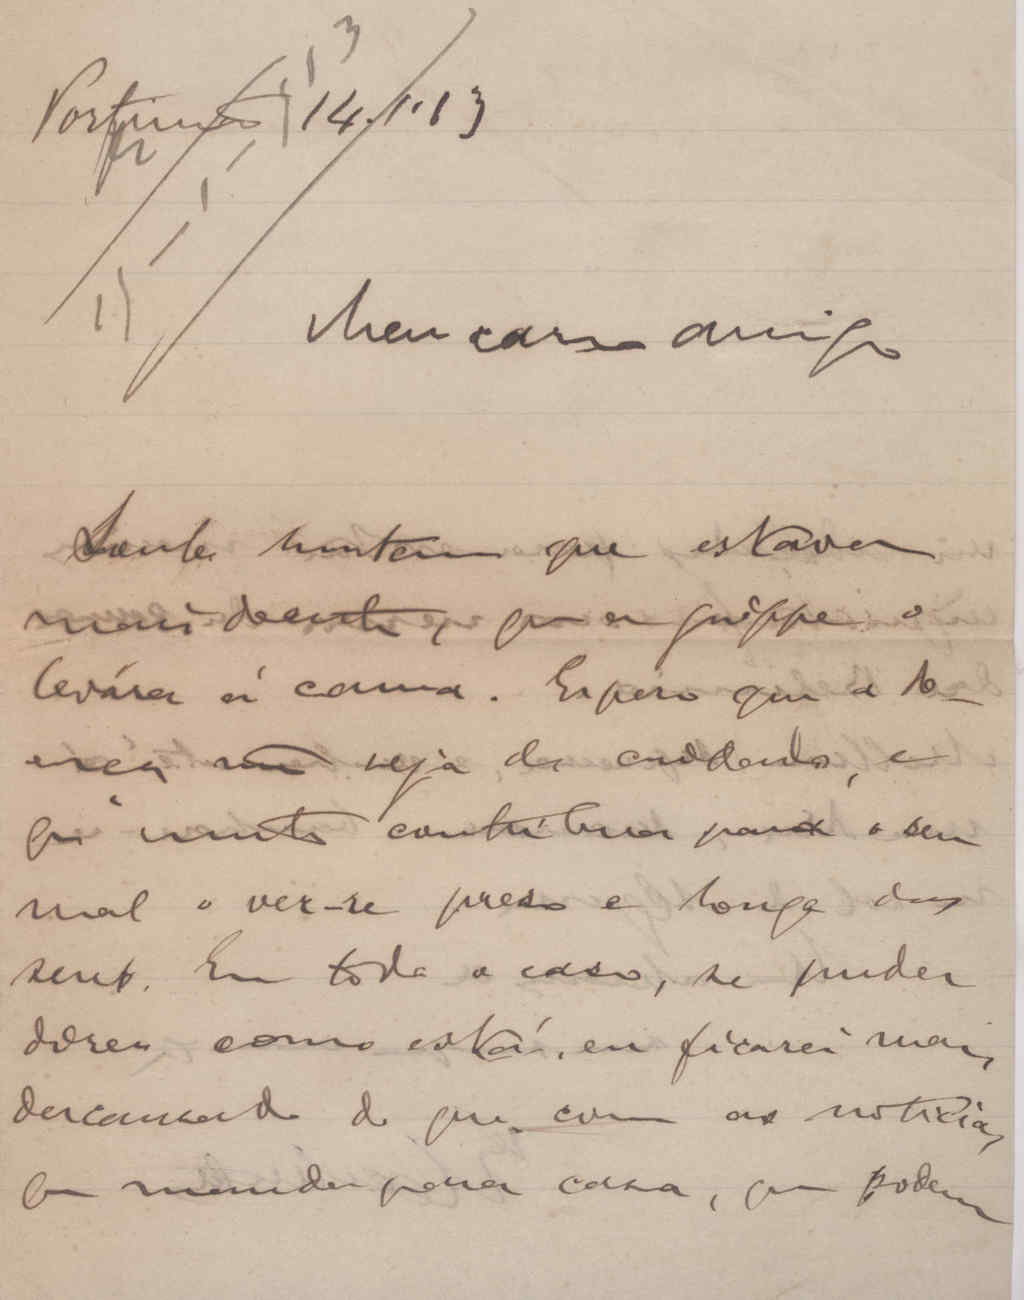 Portimão 14.1.13
Meu caro amigo
Soube hontem que estava
mais doente, que a grippe o
levára á cama. Espero que a do-
ença não seja de cuidado, e
que muito contribua para o seu
mal o ver-se preso e longe dos
seus. Em todo o caso, se puder
dizer como está, eu ficarei mais
descansado do que com as noticias
que manda para casa, que podem